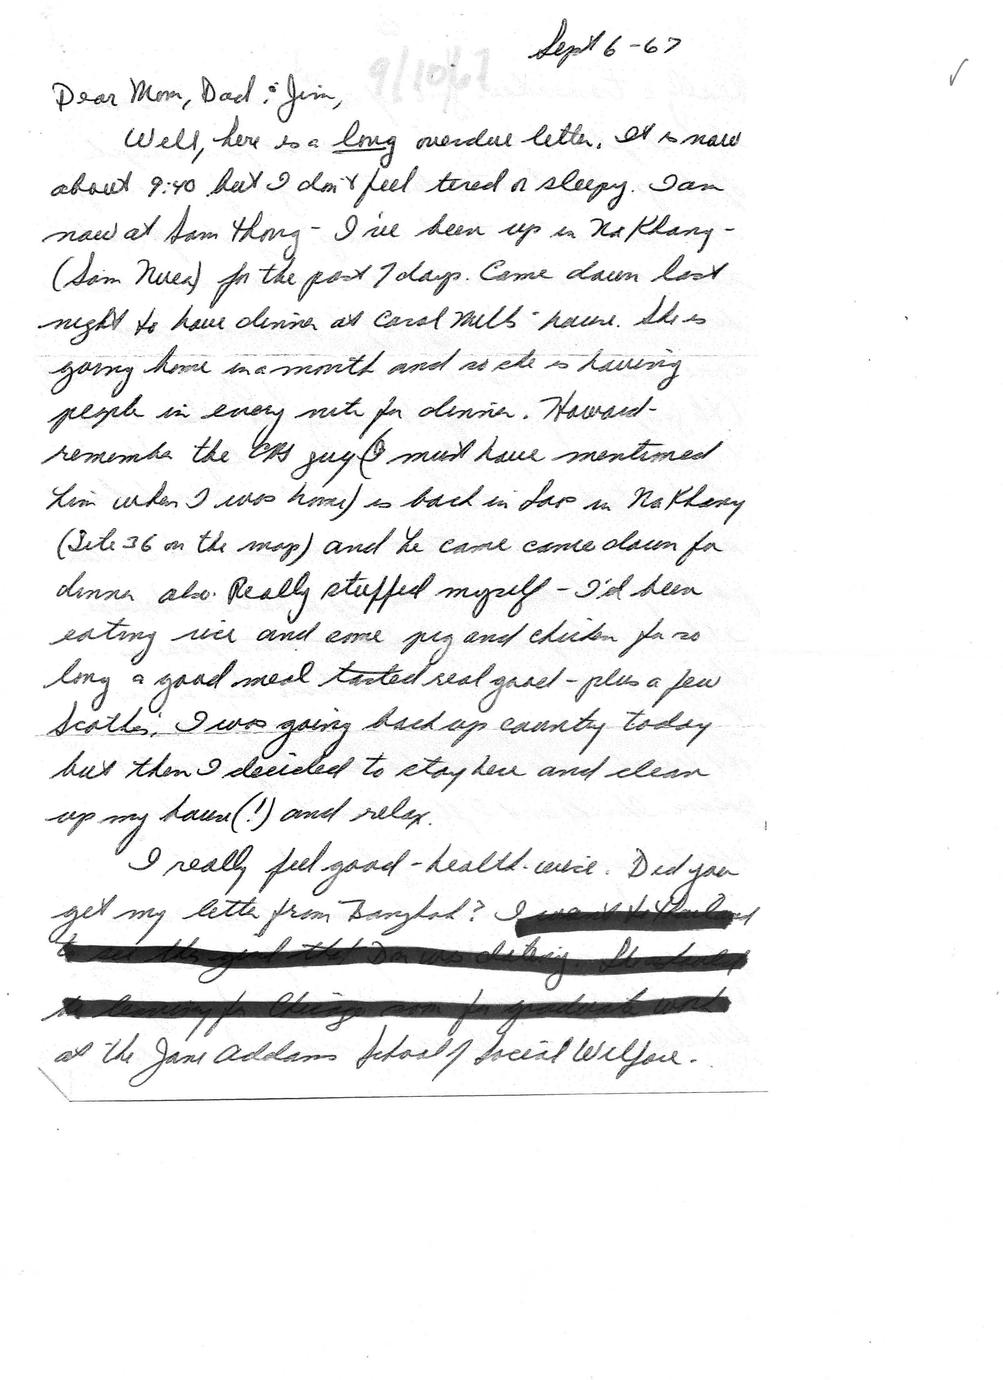 Sept 6-67
9/10/67
Dear Mom, Dad & Jim,
Well, here is a long overdue letter. It is now
about 9:40 but I don't feel tired or sleepy. I am
now at Sam Thong - I've been up in Na Khang -
(Sam Nuea) for the past 7 days. Came down last
night to have dinner at Carol Mills' house. She is
going home in a month and so she is having
people in every nite for dinner. Howard -
remember the guy (I must have mentioned
him when I was home) is back in Laos in Na Khang
(Site 36 on the map) and he came came down for
dinner also. Really stuffed myself - I'd been
eating rice and some pig and chicken for so
long a good meal tasted real good - plus a few
Scothes. I was going back up country today
but then I decided to stay here and clean
up my house (!) and relax.
I really feel good - health-wise. Did you
get my letter from Bangkok? I went to
to see the girl that Don was dating. She
is leaving for Chicago soon for graduate work
at the Jane Addams School of Social Welfare.